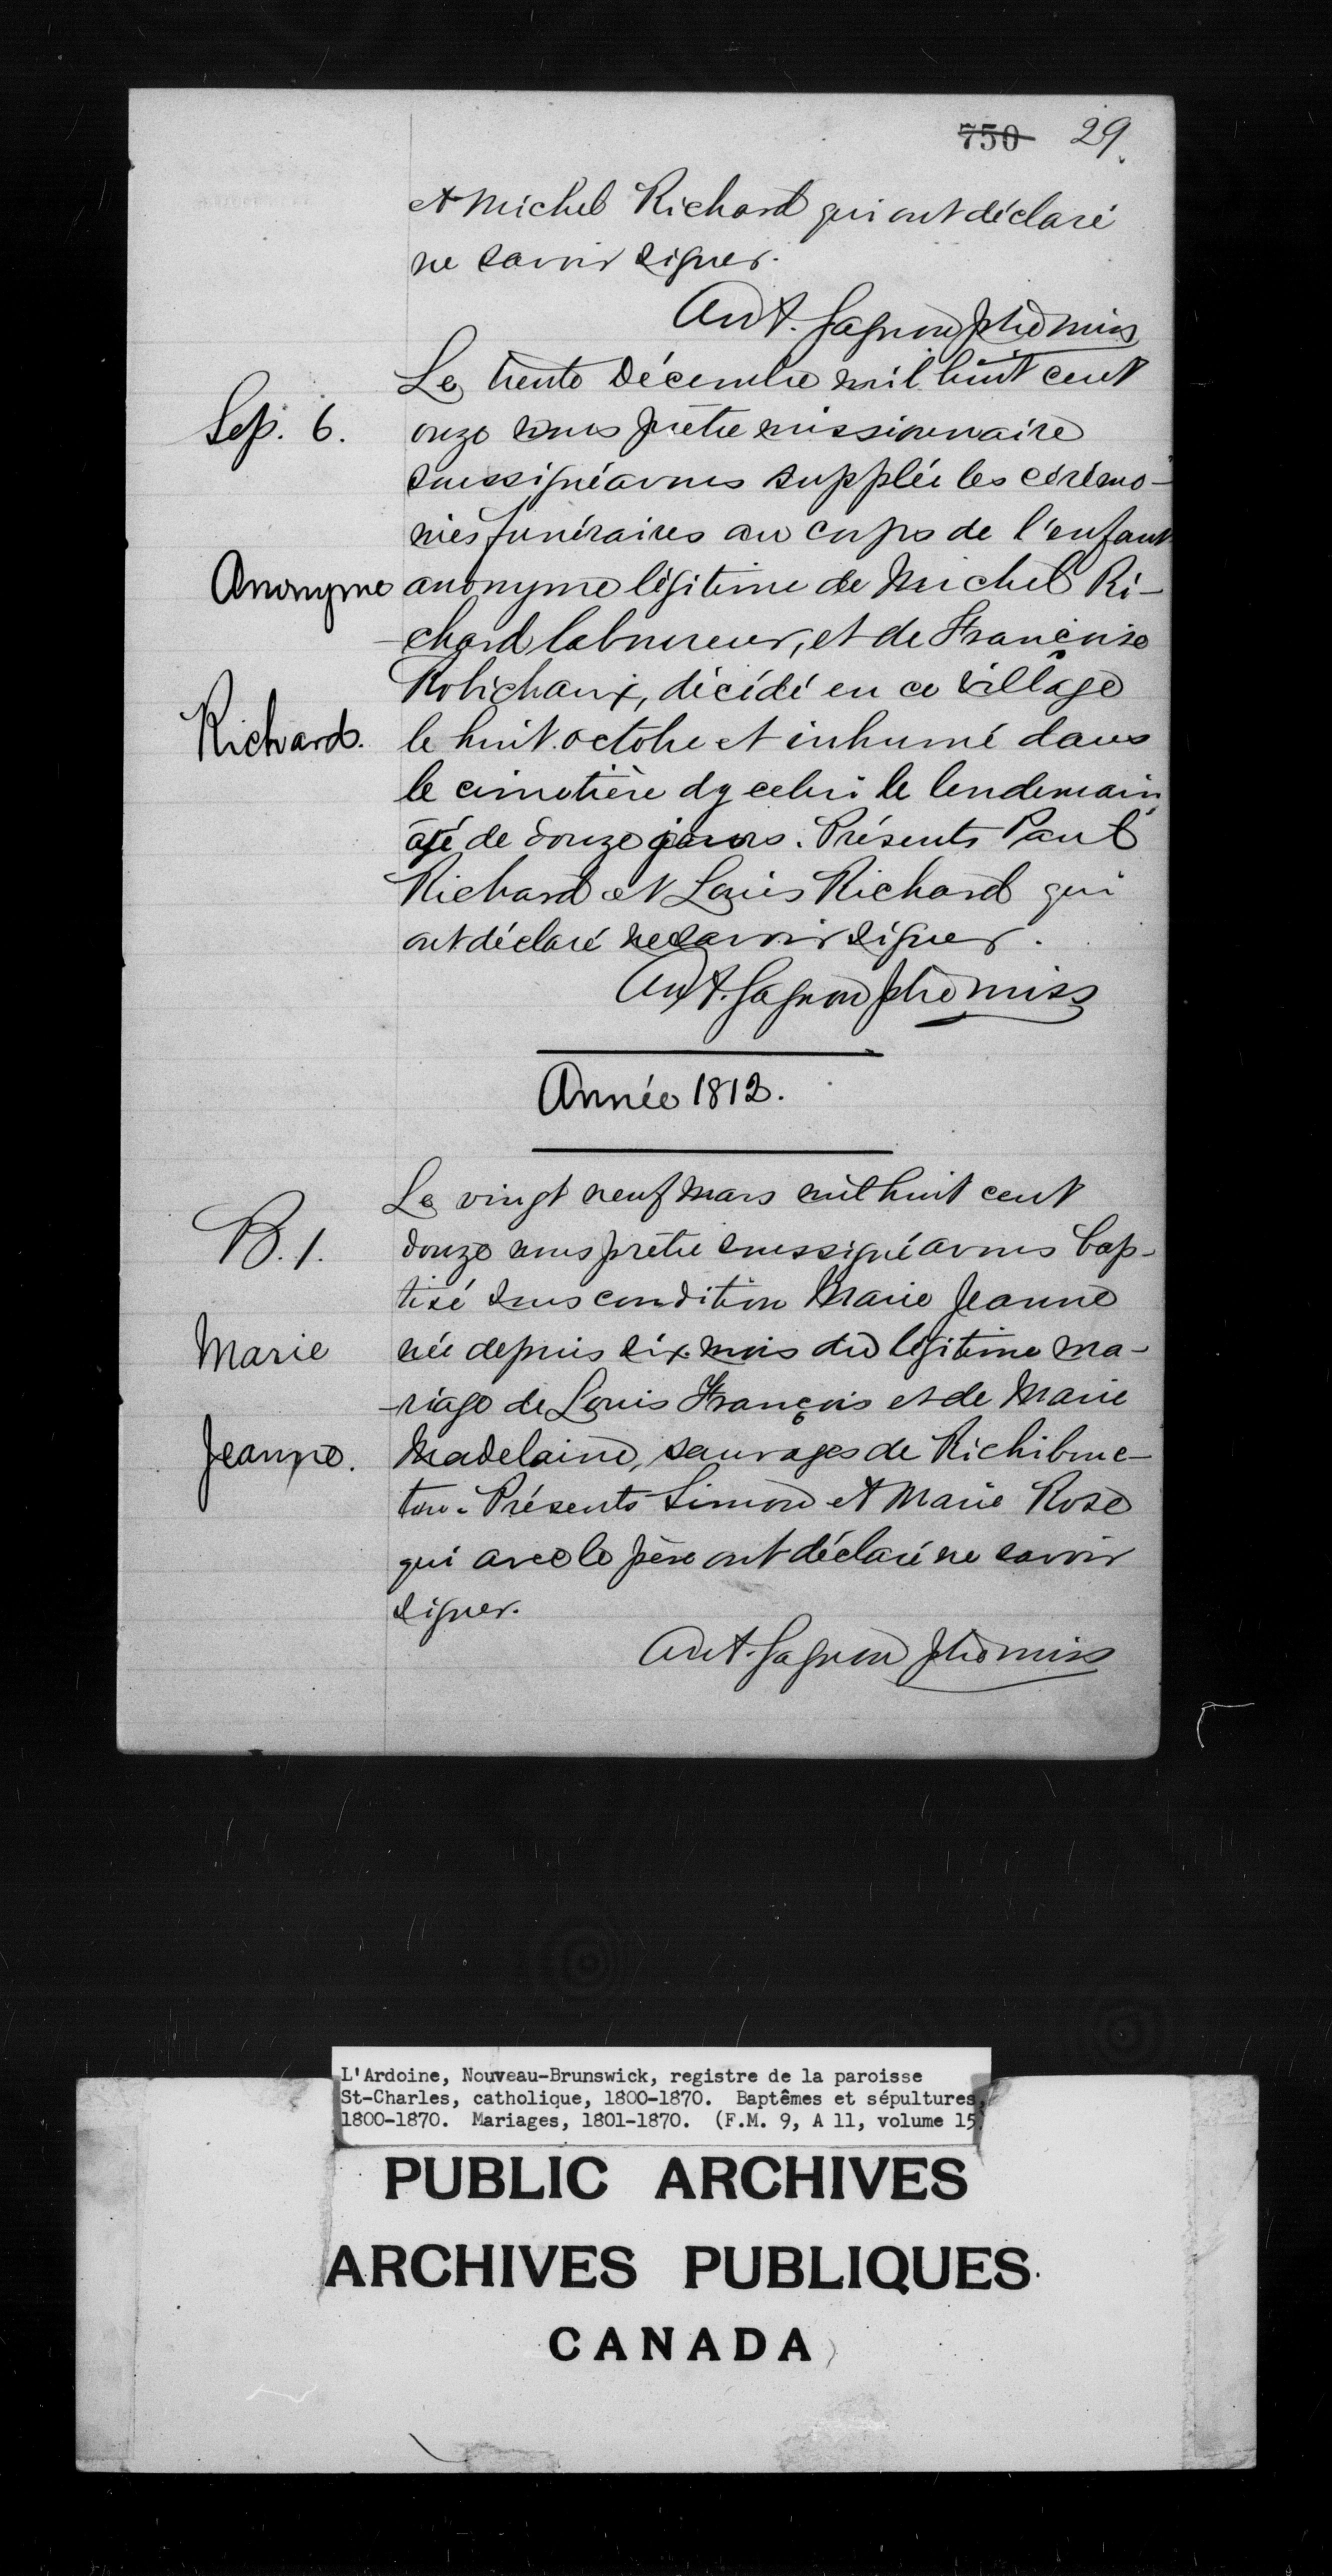 750 29.
et Michel Richard qui ont déclaré
ne savoir signer.
Ant. Gagnon ptre miss
Le trente Décembre mil huit cent
Sep. 6. onze nous prêtre missionnaire
soussigné avons supplée les cérémo-
nies funéraires au corps de l'enfant
Anonyme anonyme légitime de Michel Ri-
-chard laboureur, et de Françoise
Robichaux, décédé en ce village
Richard. le huit octobre et inhumé dans
le cimetière d'y celui le lendemain
âgé de douze jours. Présents Paul
Richard et Louis Richard qui
ont déclaré ne savoir signer.
Ant. Gagnon ptre miss
Année 1812.
Le vingt neuf Mars mil huit cent
B. 1. douze nous prêtre soussigné avons bap-
tisé sous condition Marie Jeanne
Marie née depuis six mois du légitime ma-
-riage de Louis François et de Marie
Jeanne. Madelaine, sauvages de Richibouc-
tou. Présents Simon et Marie Rose
qui avec le père ont déclaré ne savoir
signer.
Ant. Gagnon ptre miss
L'Ardoine, Nouveau-Brunswick, registre de la paroisse
St-Charles, catholique, 1800-1870. Baptêmes et sépultures,
1800-1870. Mariages, 1801-1870. (F.M. 9, A 11, volume 15)
PUBLIC ARCHIVES
ARCHIVES PUBLIQUES
CANADA